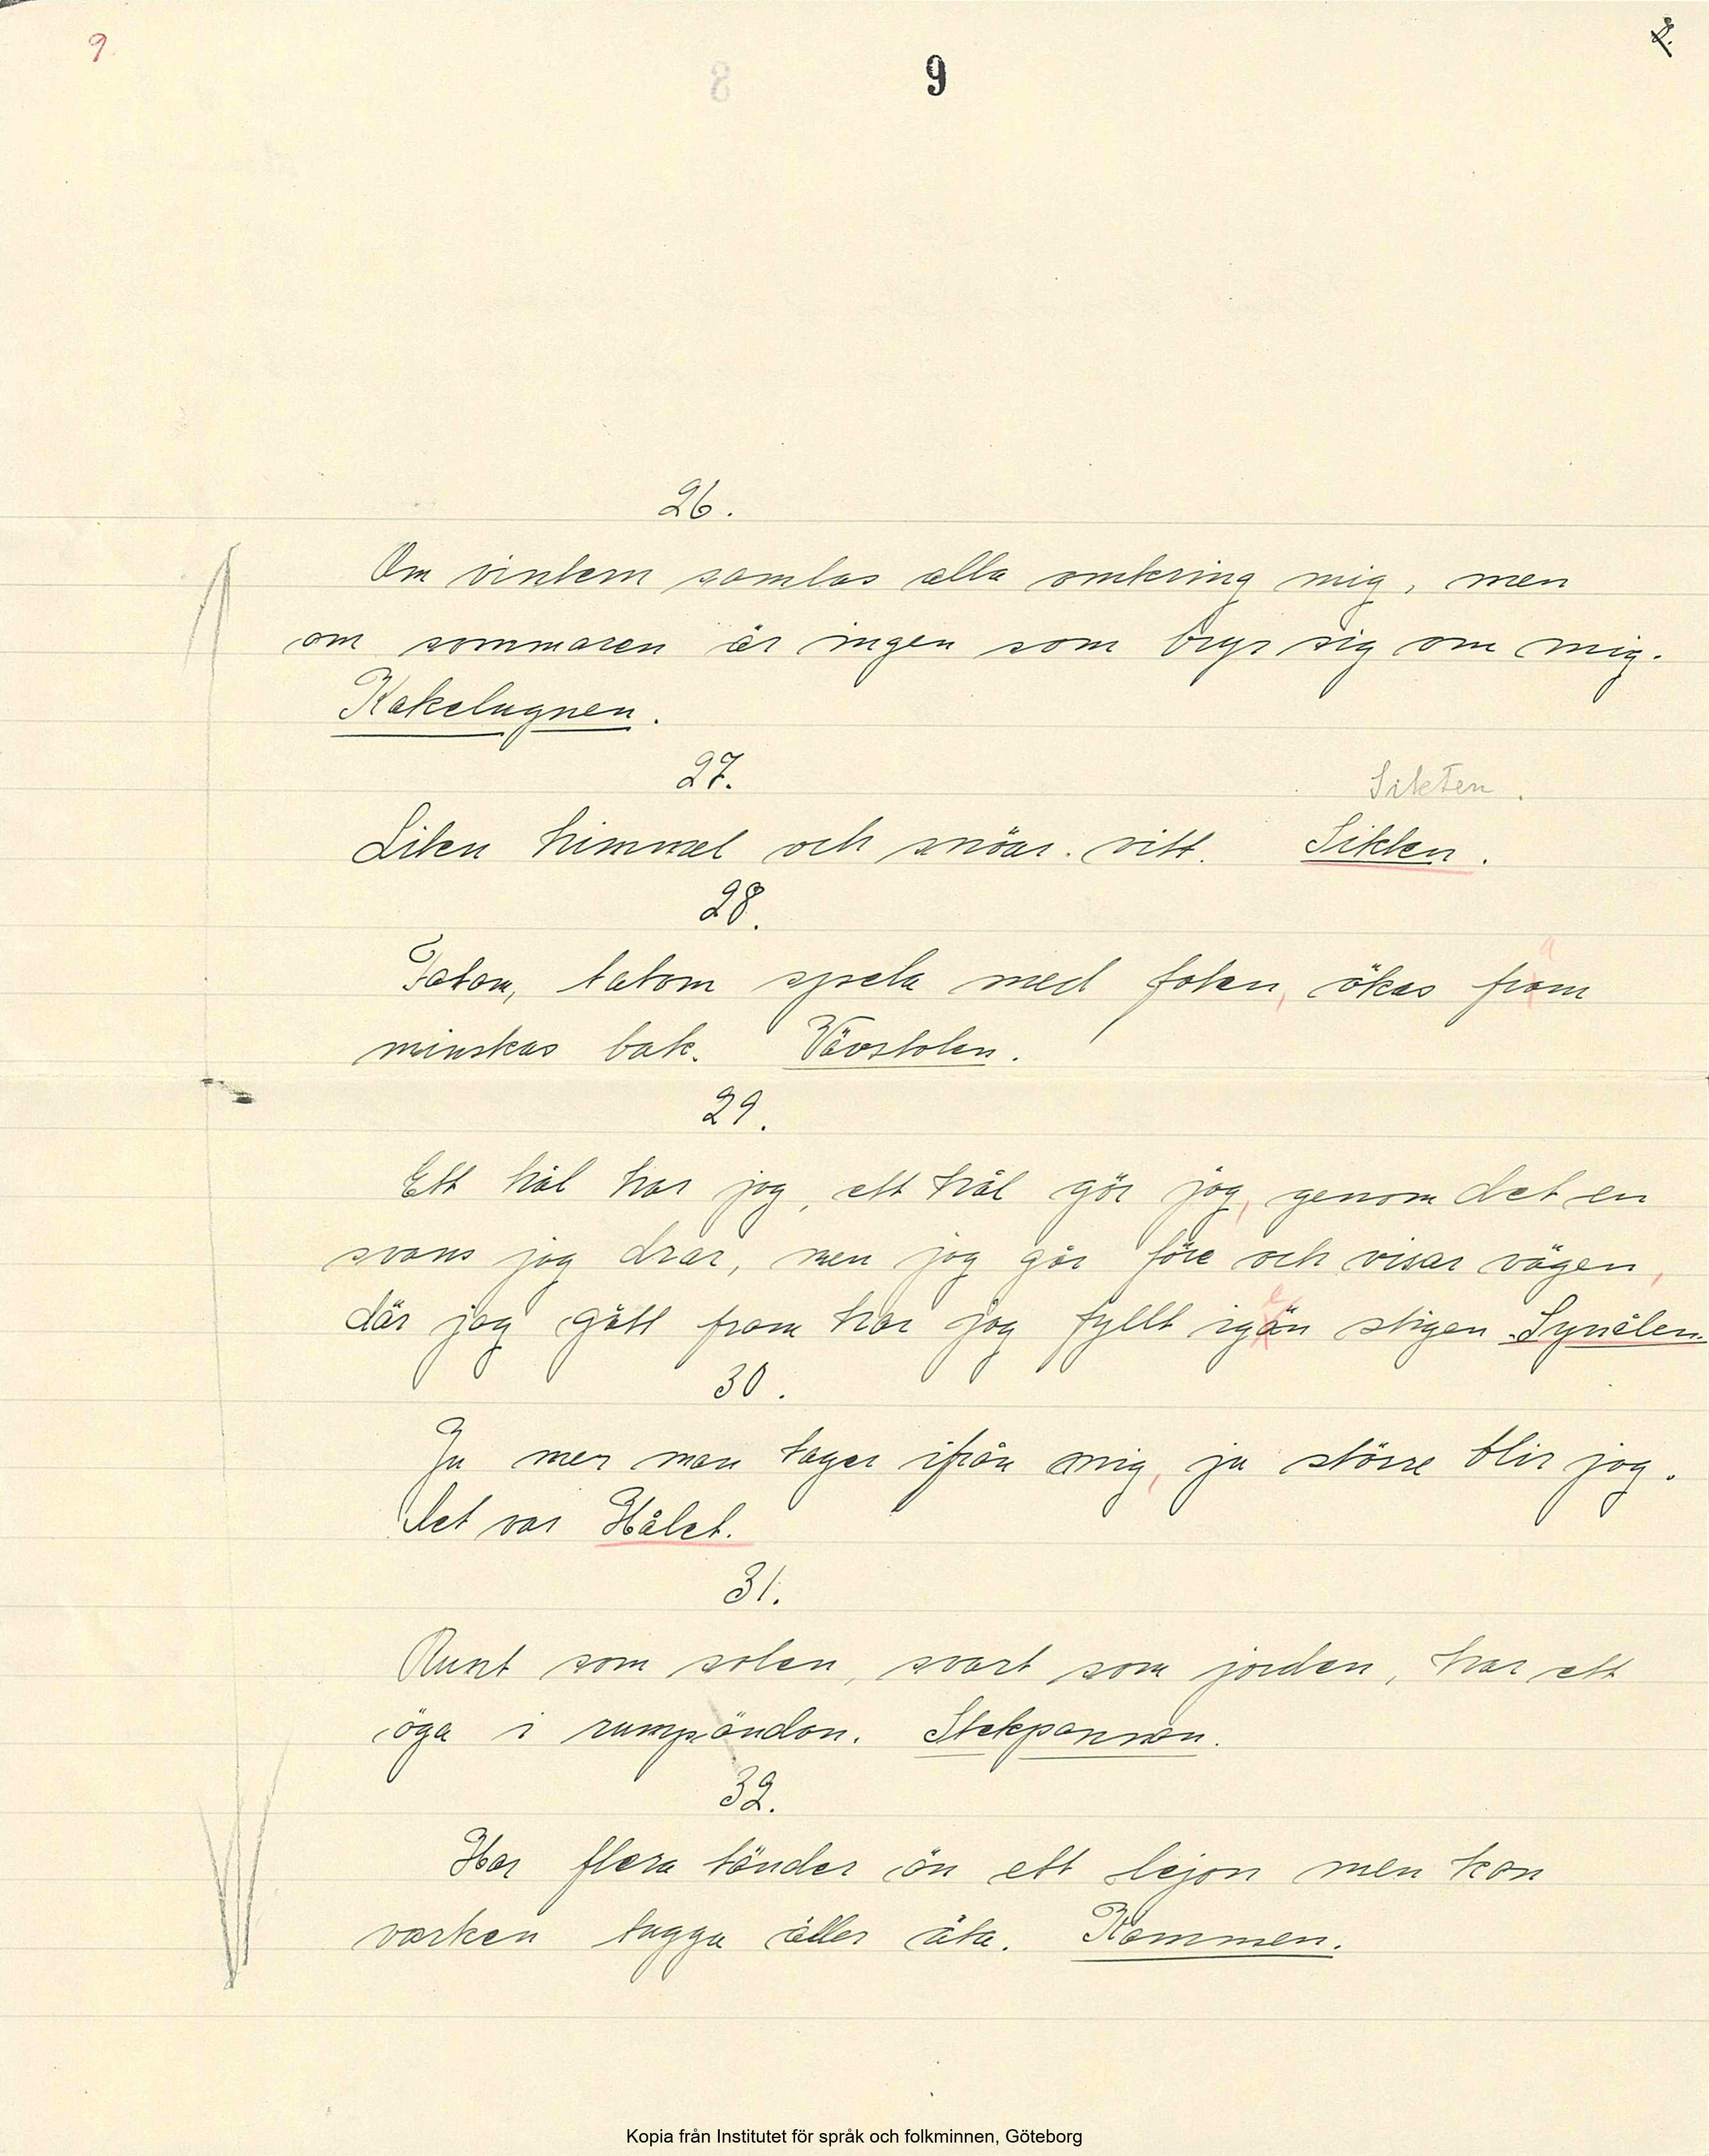 9.
8.
9
26.
Om vintern samlas alla omkring mig, men
om sommaren är ingen som bryr sig om mig.
Kakelugnen.
27.
Sikten.
Liten himmel och snöar vitt. Sikten.
28.
Tatom, tatom spela med foten, ökas fram
minskas bak. Vävstolen.
29.
Ett hål har jag, ett hål gör jag, genom det en
svans jag drar, men jag går före och visar vägen,
där jag gått fram har jag fyllt igän stigen. Synålen.
30.
Ju mer man tager ifrån mig, ju större blir jag.
Det var Hålet.
31.
Runt som solen, svart som jorden, har ett
öga i rumpändan. Stekpannan.
32.
Har flera tänder än ett lejon men kan
varken tugga äller äta. Kammen.
Kopia från Institutet för språk och folkminnen, Göteborg